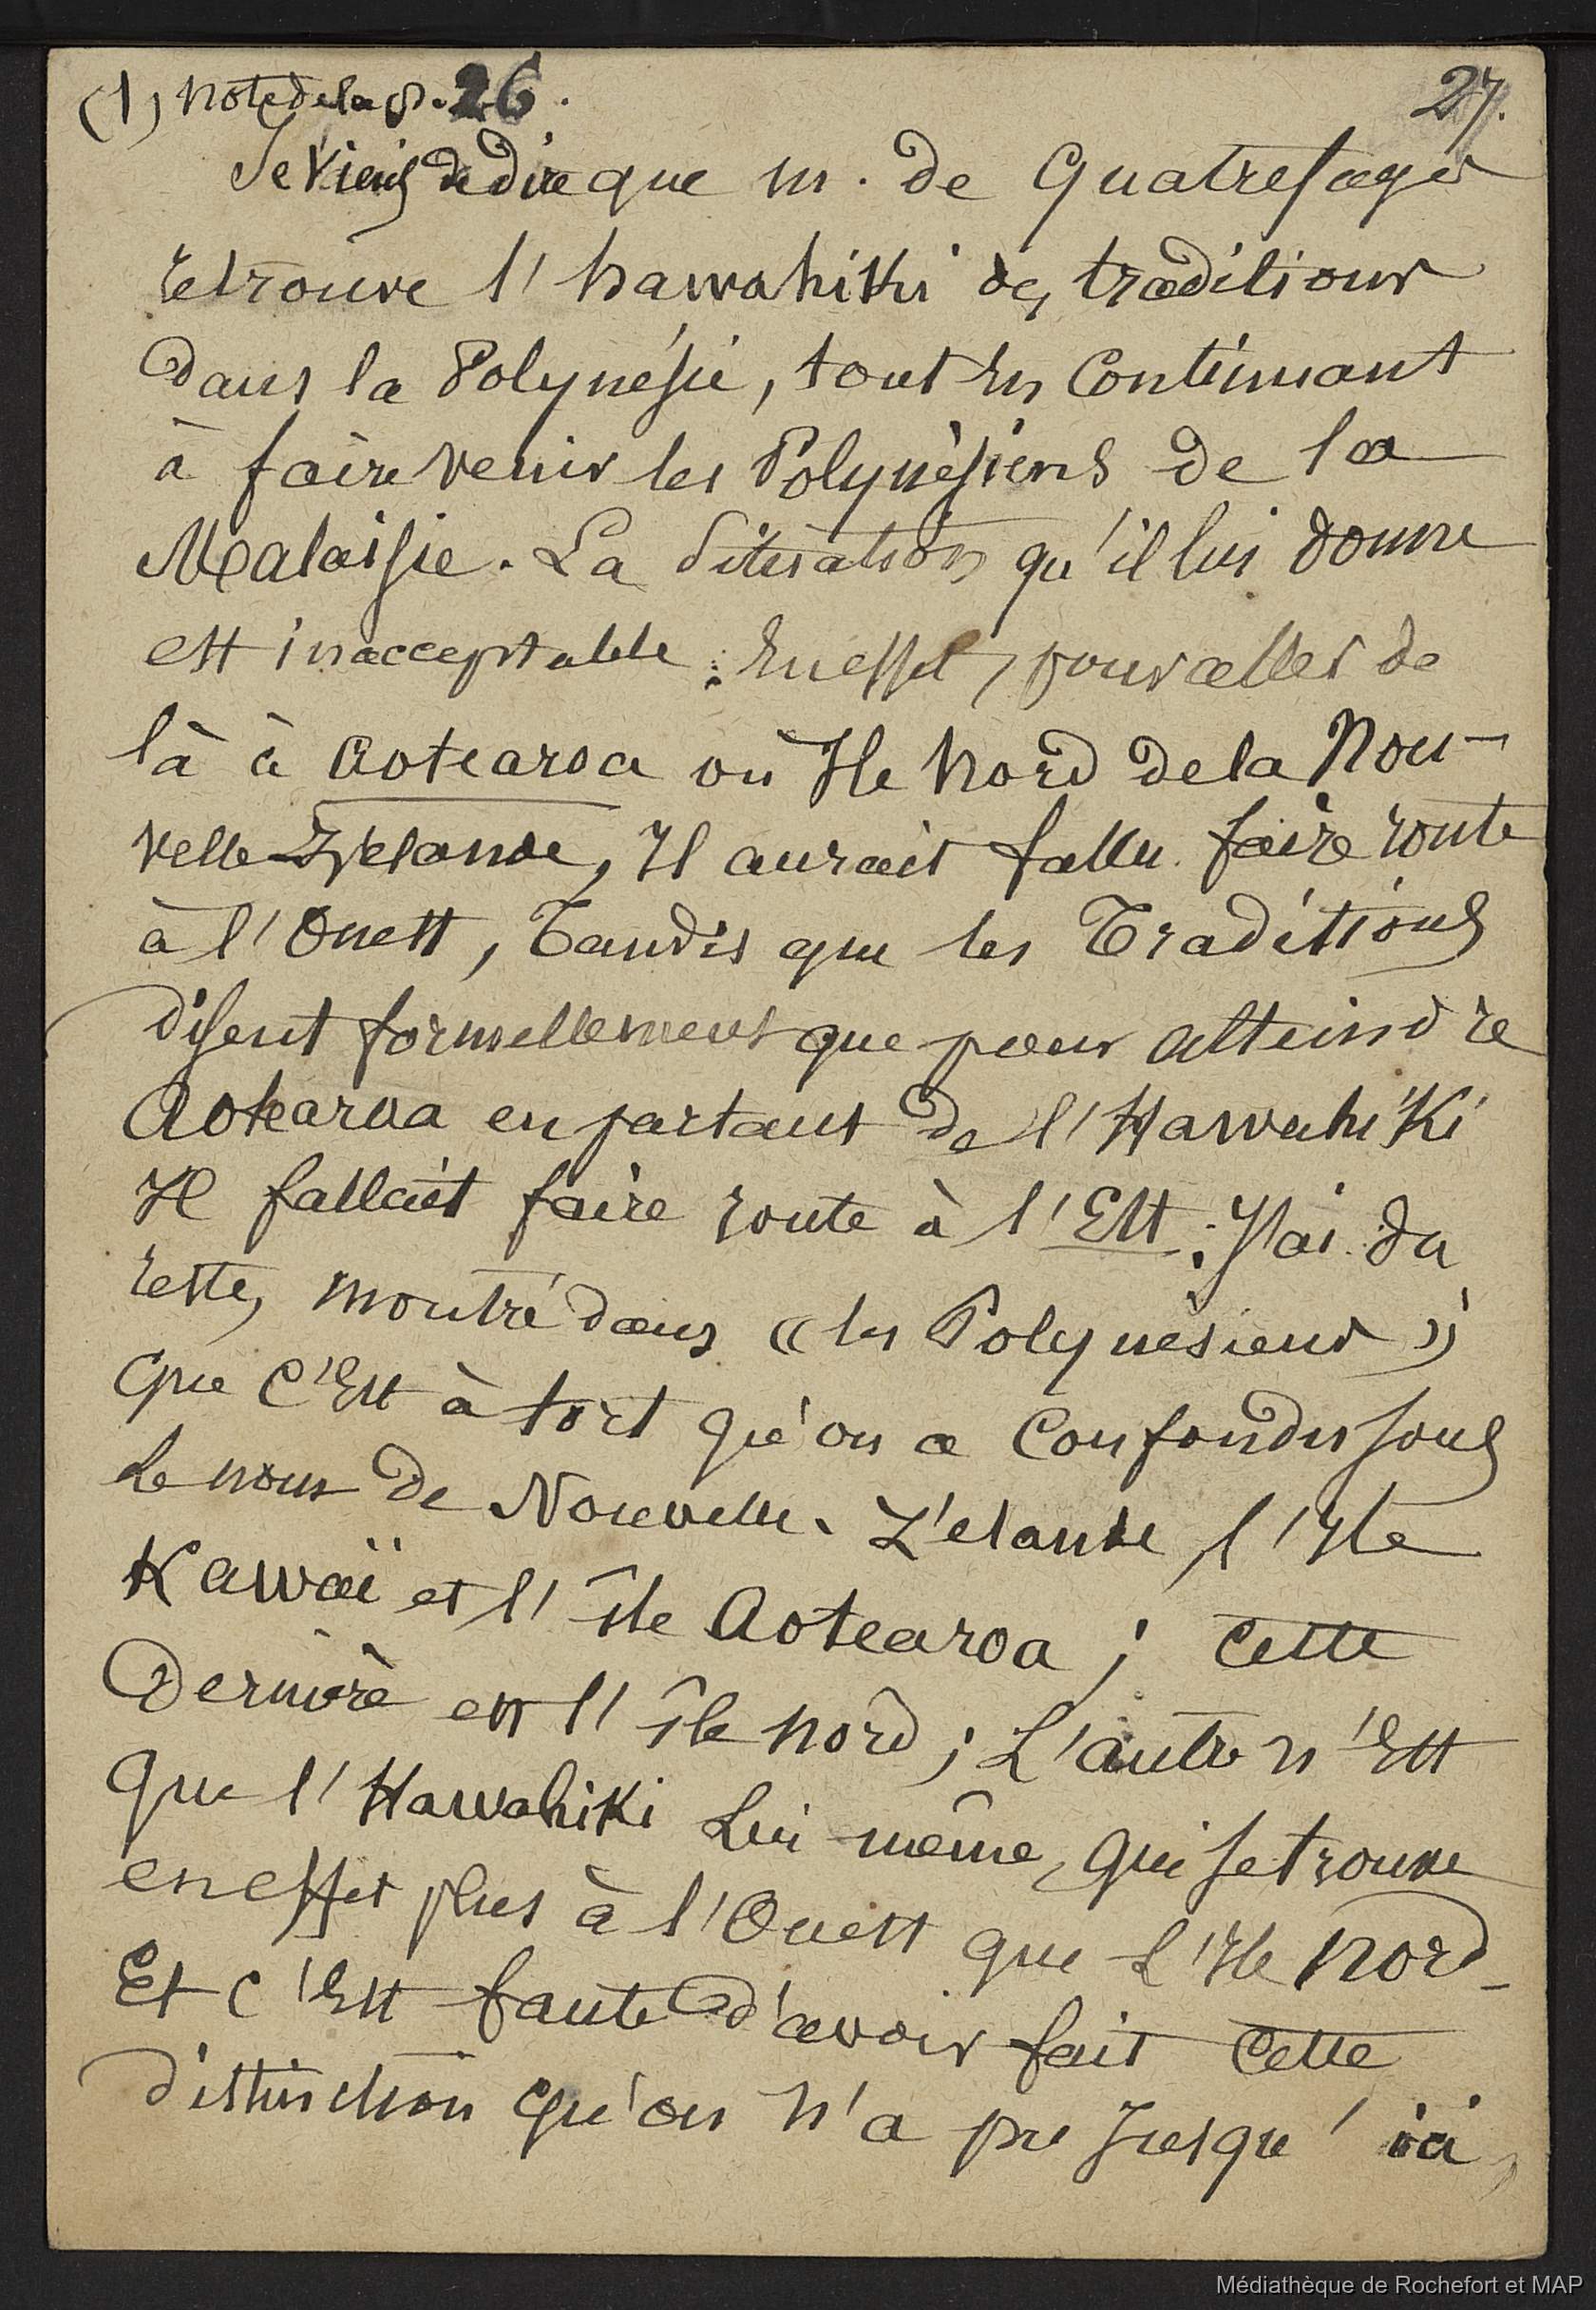 (1) Note de la p. 26.
27.
Je viens de dire que m. de Quatrefages
retrouve l'hawahiki des traditions
dans la Polynésie, tout en continuant
à faire venir les Polynésiens de la
Malaisie. La situation qu'il lui donne
est inacceptable : en effet, pour aller de
là à Aotearoa ou Ile Nord de la Nou-
velle Zélande, Il aurait fallu faire route
à l'Ouest, Tandis que les Traditions
disent formellement que pour atteindre
Aotearoa en partant de l'Hawahiki
Il fallait faire route à l'Est. J'ai du
reste, montré dans « les Polynésiens »
que C'est à tort qu'on a confondu sous
Le nom de Nouvelle-Zélande l'Ile
Kawaï et l'île Aotearoa ; cette
Dernière est l'île nord ; L'autre n'est
que l'Hawahiki Lui-même, qui se trouve
en effet plus à l'Ouest que L'Ile Nord_
Et c'Est faute d'avoir fait cette
distinction qu'on n'a pu Jusqu'ici,
Médiathèque de Rochefort et MAP